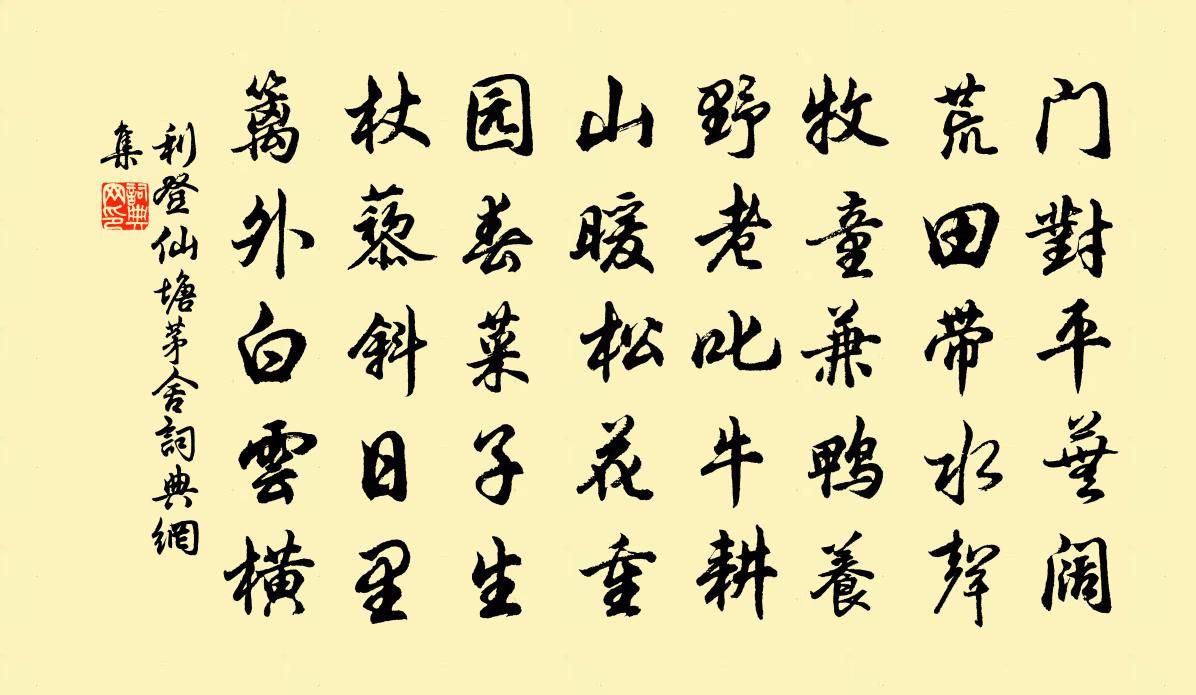 门對平蕪阔
荒田带水聲
牧童兼鴨養
野老叱牛耕
山暖松花重
园春菜子生
杖藜斜日里
篱外白雲横
利登仙塘茅舍詞典網
集
詞典
网印